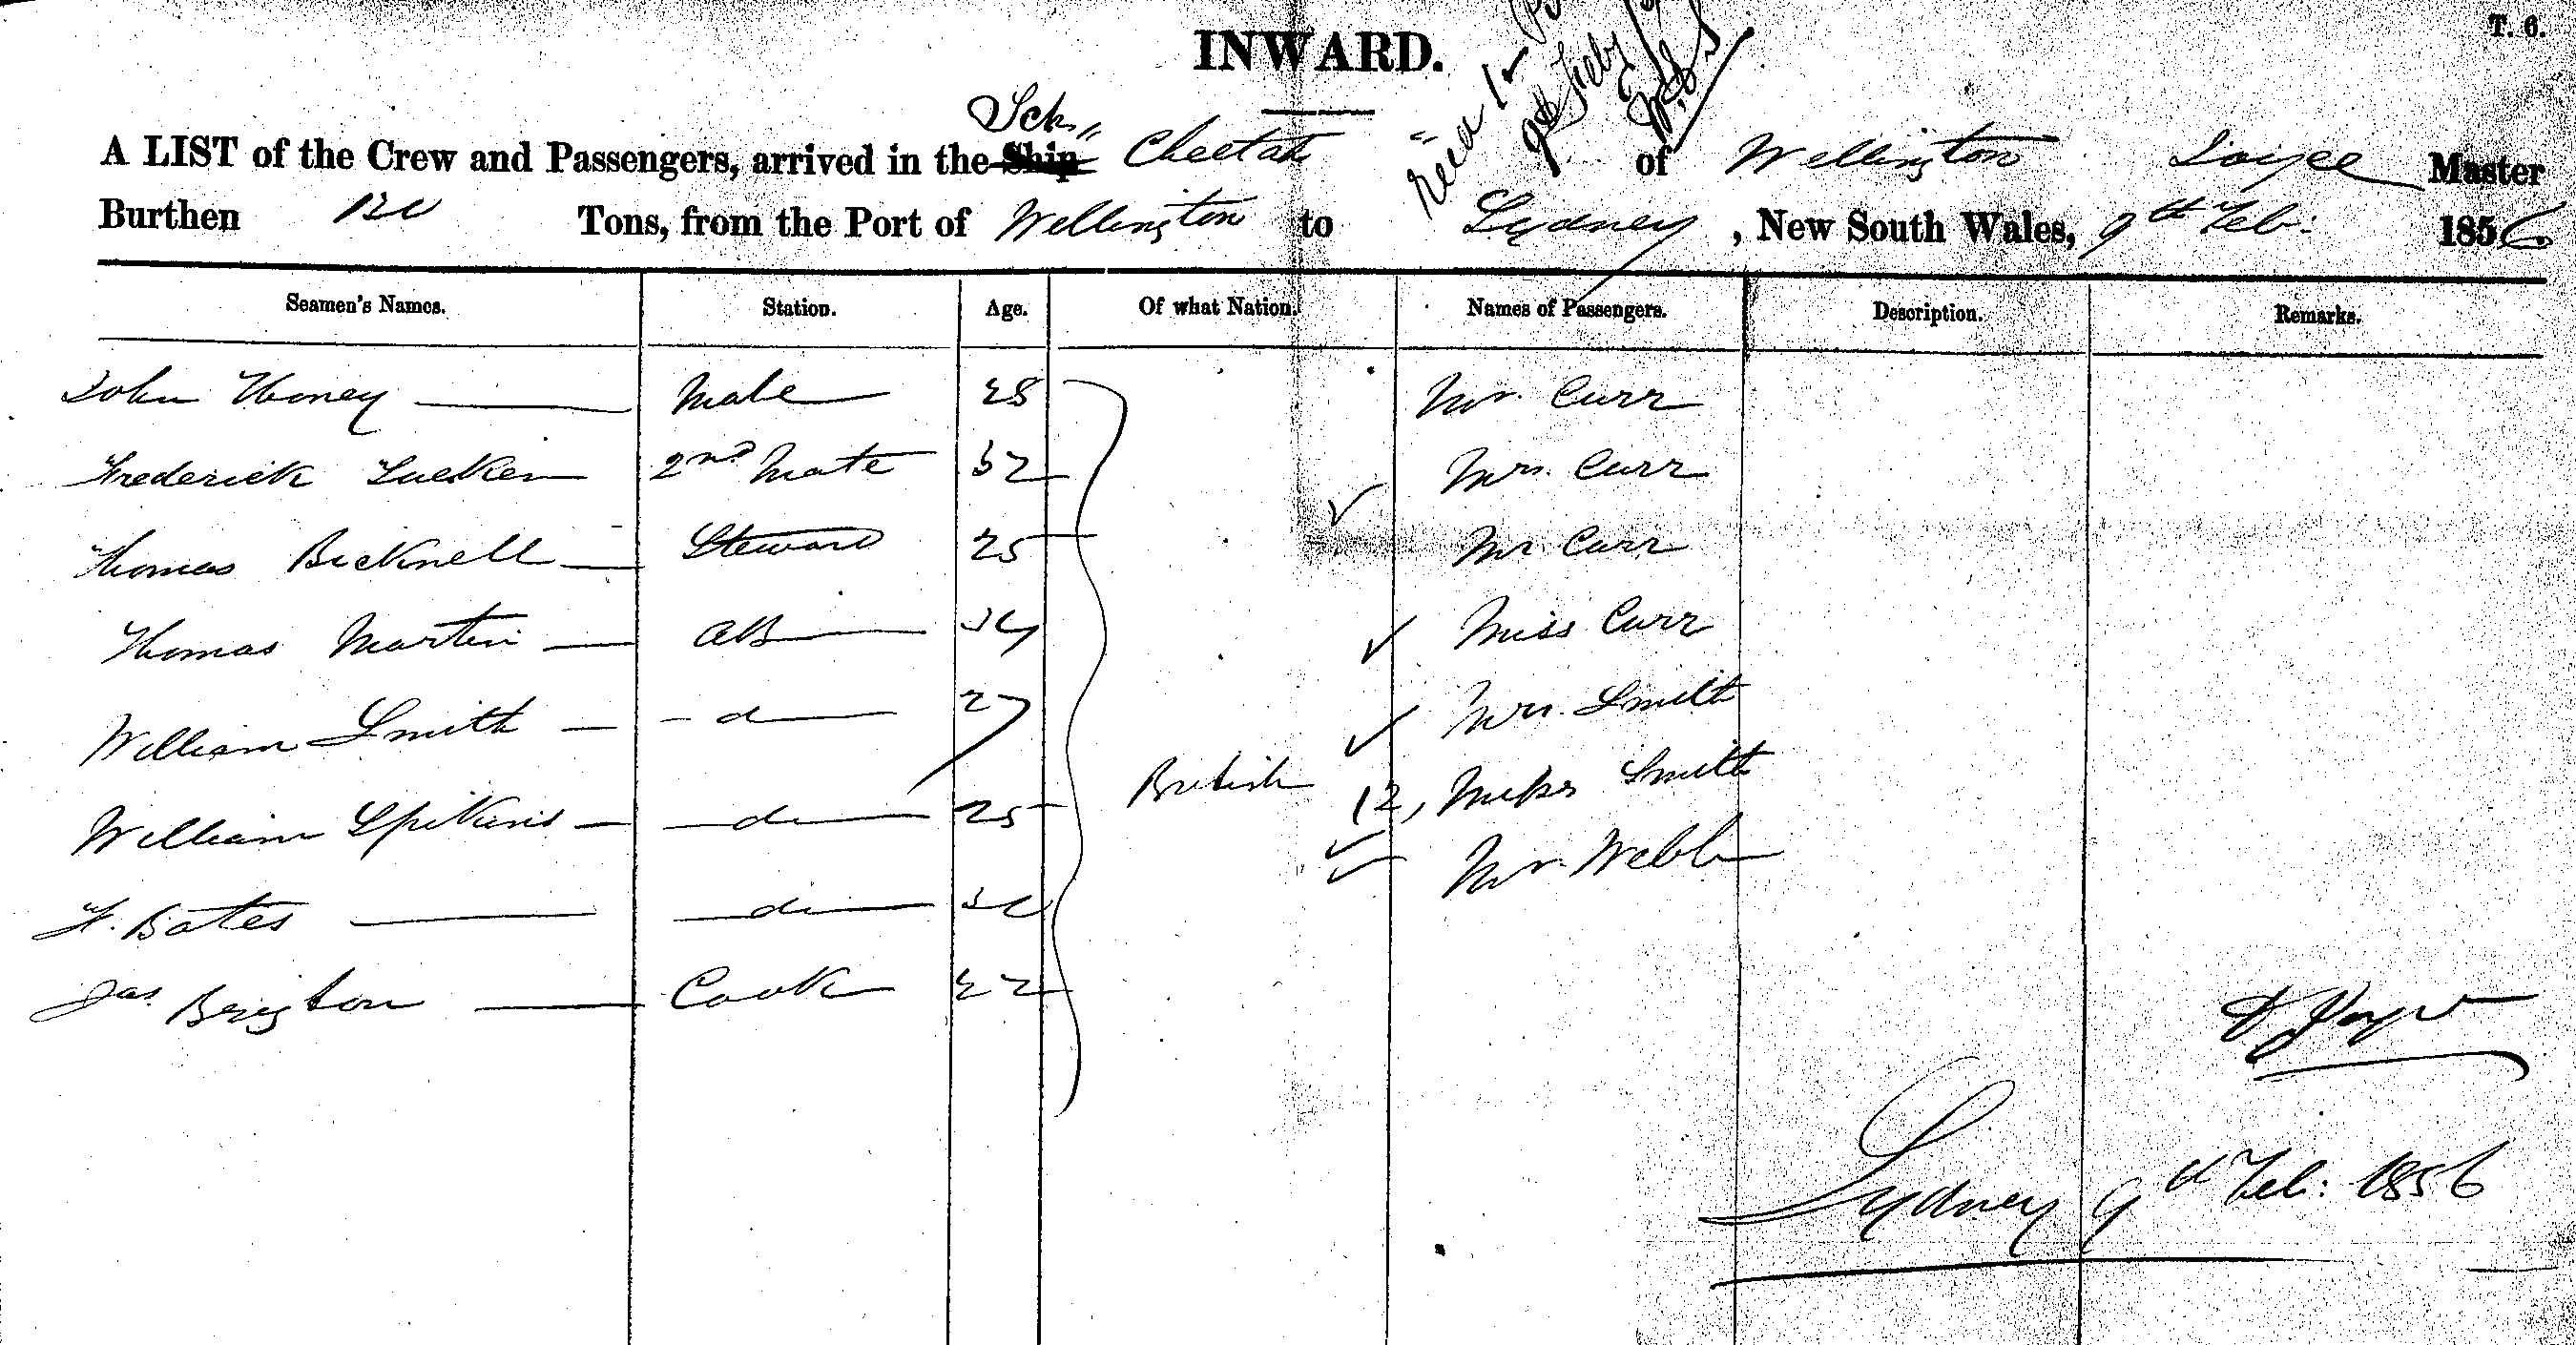 T. 6.
INWARD.
Sch. "
A LIST of the Crew and Passengers, arrived in the Ship Cheetah " of Wellington Joyce Master
Burthen Tons, from the Port of Wellington to Sydney, New South Wales, 9th Feb: 1856
Seamen's Names. Station. Age. Of what Nation. Names of Passengers. Description. Remarks.
John Honey Mate 28 Mr. Curr
Frederick 2nd Mate 32 Mrs. Curr
Thomas Bicknell Steward 25 Mr Curr
Thomas Martin AB 34 Miss Curr
William Smith do 27 Mrs. Smith
William do 25 British 12, Smith
F. Bates do Mr. Webb
Jas Brigton Cook 22
D Joyce
Sydney 9th Feb: 1856